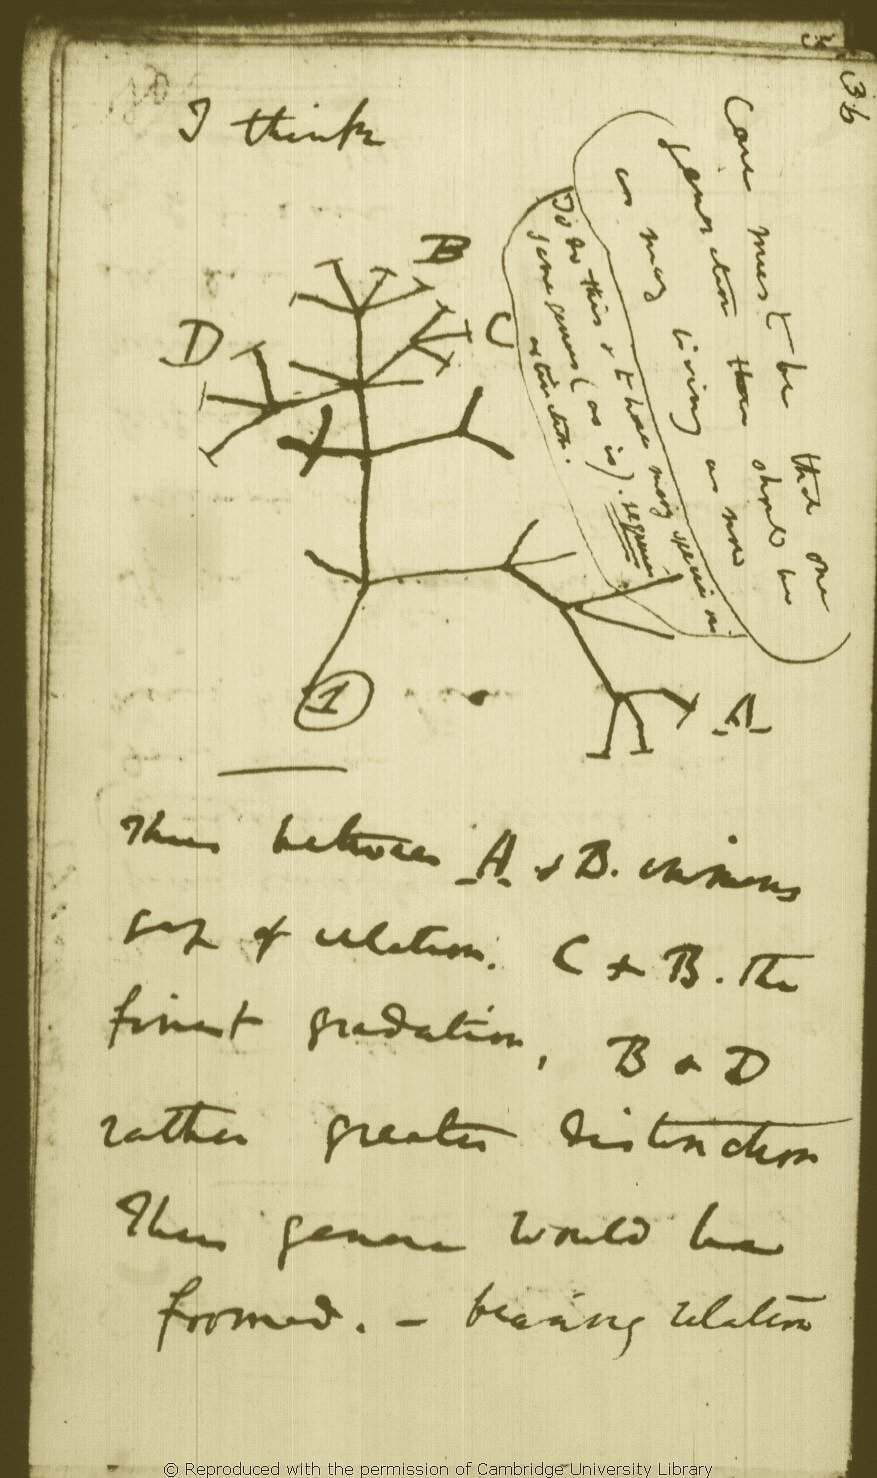 36
I think
Case must be that one
generation then should be
as many living as now
To do this & to have many species in
same genus (as is). requires
extinction.
B
C
D
A
1
Thus between A & B. immens
gap of relation. C & B. The
finest gradation, B & D
rather greater distinction
Thus genera would be
formed. — bearing relation
© Reproduced with the permission of Cambridge University Library